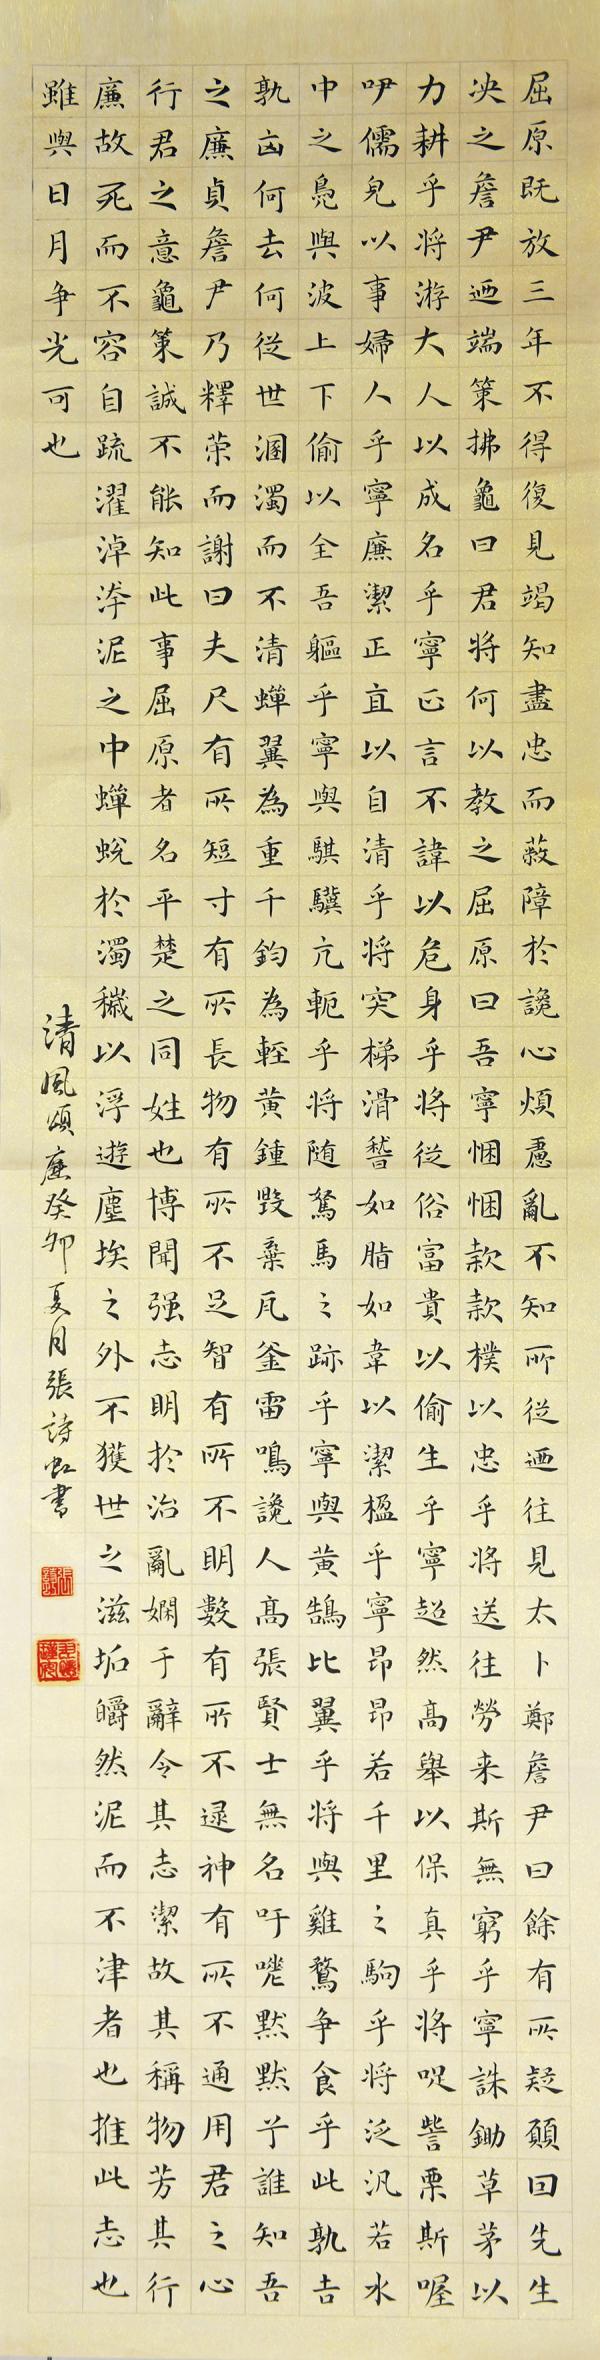 屈原既放三年不得復見竭知盡忠而蔽障於讒心煩慮亂不知所從迺往見太卜鄭詹尹曰餘有所疑願因先生
決之詹尹迺端策拂龜曰君將何以教之屈原曰吾寧悃悃款款樸以忠乎將送往勞来斯無窮乎寧誅鋤草茅以
力耕乎將游大人以成名乎寧正言不諱以危身乎將從俗富貴以偷生乎寧超然高舉以保真乎將哫訾栗斯喔
咿儒兒以事婦人乎寧廉潔正直以自清乎將突梯滑稽如脂如韋以潔楹乎寧昂昂若千里之駒乎將泛汎若水
中之鳧與波上下偷以全吾軀乎寧與騏驥亢軛乎將随駑馬之跡乎寧與黄鵠比翼乎將與雞鶩争食乎此孰吉
孰凶何去何從世溷濁而不清蟬翼為重千鈞為輕黄鍾毀棄瓦釜雷鳴讒人高張賢士無名吁嗟默默兮誰知吾
之廉貞詹尹乃釋策而謝曰夫尺有所短寸有所長物有所不足智有所不明數有所不逮神有所不通用君之心
行君之意龜策誠不能知此事屈原者名平楚之同姓也博聞强志明於治亂嫻于辭令其志潔故其稱物芳其行
廉故死而不容自疏濯淖洿泥之中蟬蛻於濁穢以浮遊塵埃之外不獲世之滋垢皭然泥而不津者也推此志也
雖與日月争光可也
清風頌廉癸卯夏月張詩虹書